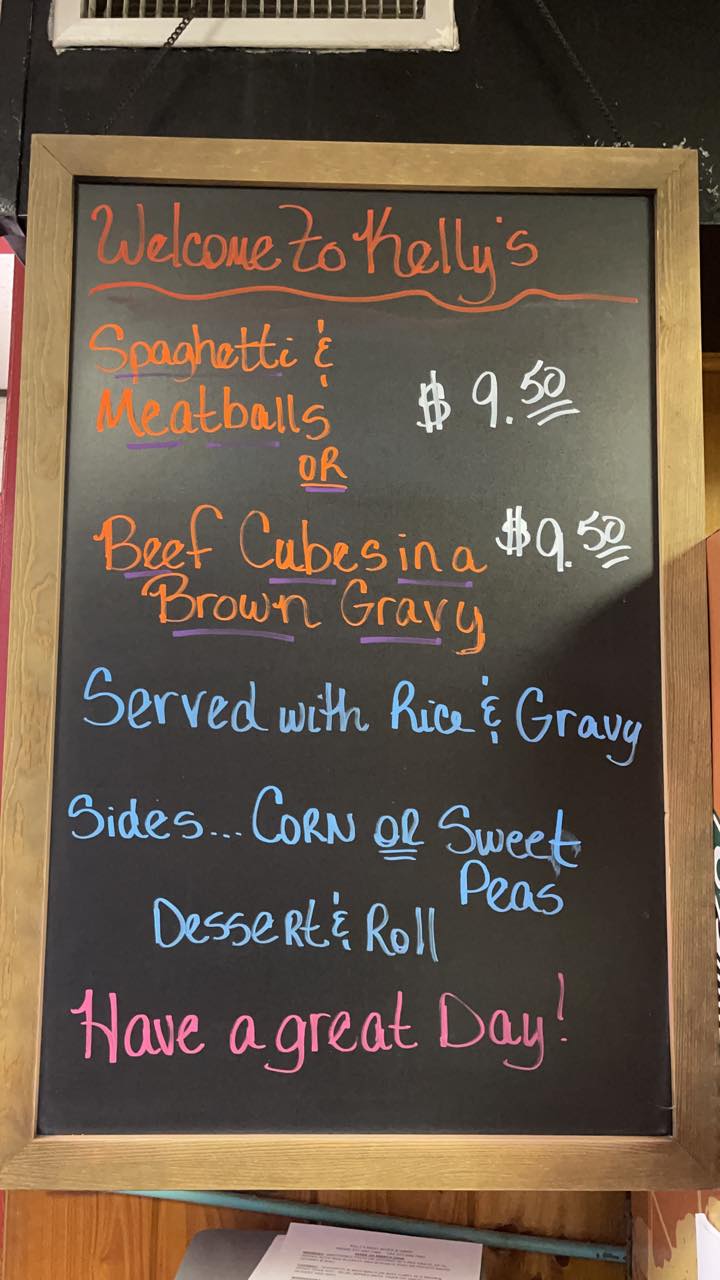 Welcome to Kelly's
Spaghetti &
Meatballs $9.50
OR
Beef Cubes in a $9.50
Brown Gravy
Served with Rice & Gravy
Sides... CORN OR Sweet
Peas
Dessert & Roll
Have a great Day!